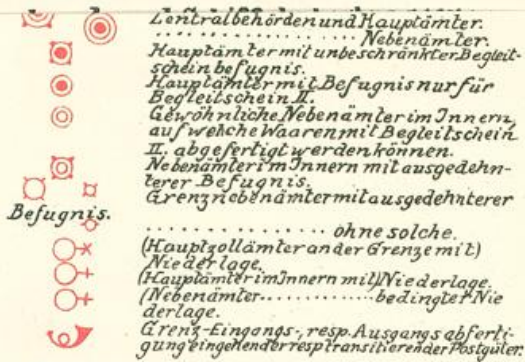 Zentralbehörden und Hauptämter.
.................. Nebenämter.
Hauptämter mit unbeschränkter Begleit-
schein befugnis.
Hauptämter mit Befugnis nur für
Begleitschein II.
Gewöhnliche Nebenämter im Innern,
auf welche Waaren mit Begleitschein
II. abgefertigt werden können.
Nebenämter im Innern mit ausgedehn-
terer Befugnis.
Grenznebenämter mit ausgedehnterer
Befugnis.
.................. ohne solche.
(Hauptzollämter an der Grenze mit)
Niederlage.
(Hauptämter im Innern mit) Niederlage.
(Nebenämter............ bedingter Nie
derlage.
Grenz-Eingangs-, resp. Ausgangs abferti-
gung eingehender resp transitierender Postgüter